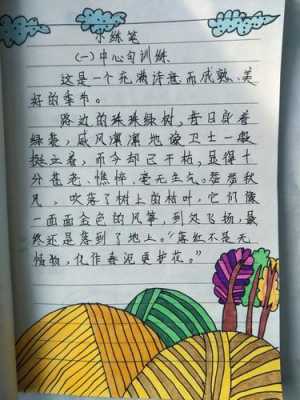 小练笔
(一)中心句训练
这是一个充满诗意而成熟、美
好的季节。
路边的株株绿树,昔日身着
绿装,威风凛凛地像卫士一般
挺立着,而今却已干枯,显得十
分苍老、憔悴、毫无生气。瑟瑟秋
风,吹落了树上的枯叶,它们像
一面面金色的风筝,到处飞扬,最
终还是落到了地上。“落红不是无
情物,化作春泥更护花。”